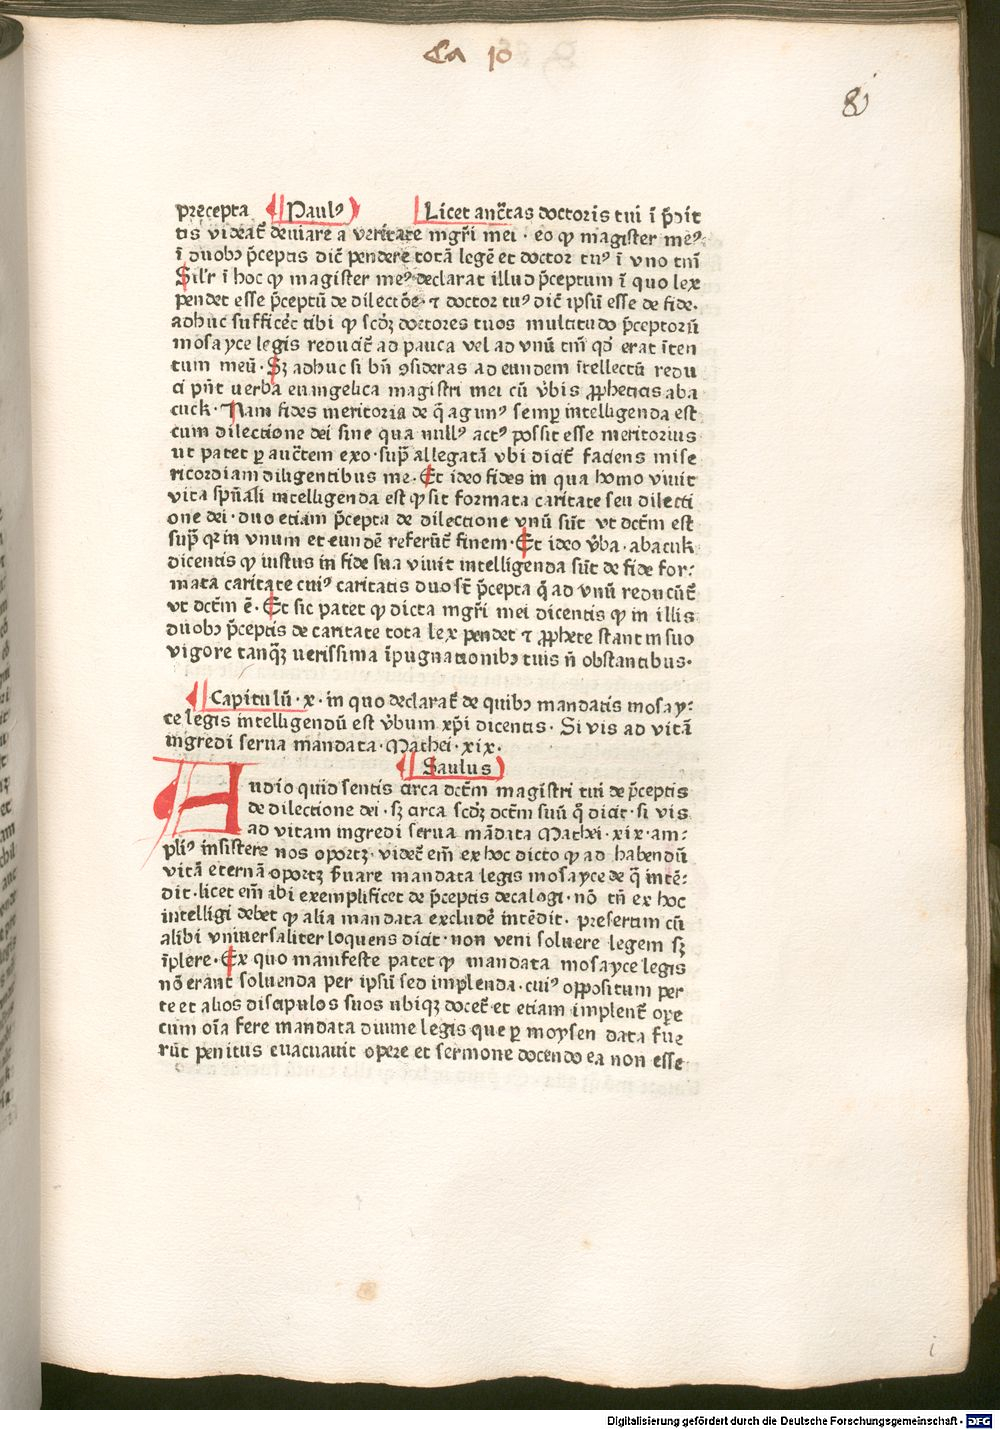 Ca 10
81
precepta Paul⁹ Licet auct̄tas doctoris tui ī p̄dit
tis videat᷑ deuiare a veritate mgr̄i mei · eo ꝙ magister me⁹
ī duobꝫ p̄ceptis dic̄ pendere totā legē et doctor tu⁹ ī vno tm̄
Sil'r ī hoc ꝙ magister me⁹ declarat illud p̄ceptum ī quo lex
pendet esse p̄ceptū de dilectōe · ⁊ doctor tu⁹ dic̄ ipsū esse de fide ·
adhuc sufficēt tibi ꝙ scdꝫ doctores tuos multitudo p̄ceptorū
mosayce legis reducit᷑ ad pauca vel ad vnū tm̄ qd̄ erat īten
tum meū · Sꝫ adhuc si bn̄ ꝯsideras ad eundem ītellectū redu
ci pn̄t uerba euangelica magistri mei cū v̄bis ꝓpheticis aba
cuck · Nam fides meritoria de q̄ agimus semꝑ intelligenda est
cum dilectione dei sine qua null⁹ act⁹ possit esse meritorius
ut patet ꝑ auct̄em exo · sup̄ allegatā vbi dicit᷑ faciens mise
ricordiam diligentibus me · Et ideo fides in qua homo viuit
vita spūali intelligenda est ꝙ sit formata caritate seu dilecti
one dei · duo etiam p̄cepta de dilectione vnū sūt vt dctm̄ est
sup̄ qꝛ in vnum et eundē referūt᷑ finem · Et ideo v̄ba · abacuk
dicentis ꝙ iustus in fide sua viuit intelligenda sūt de fide for:
mata caritate cui⁹ caritatis duo st̄ p̄cepta q̄ ad vnū reducūt᷑
vt dctm̄ ē · Et sic patet ꝙ dicta mgr̄i mei dicentis ꝙ in illis
duobꝫ p̄ceptis de caritate tota lex pendet ⁊ ꝓphete stant in suo
vigore tanqꝫ uerissima īpugnationibꝫ tuis n̄ obstantibus ·
Capitulū · x · in quo declarat᷑ de quibꝫ mandatis mosay:
ce legis intelligendū est v̄bum xp̄i dicentis · Si vis ad vitā
ingredi serua mandata · Mathei · xix ·
Saulus
Audio quid sentis circa dctm̄ magistri tui de p̄ceptis
de dilectione dei · sꝫ circa scdꝫ dctm̄ suū q̄ dicit · si vis
ad vitam ingredi serua mādata Mathei · xix · am:
pli⁹ insistere nos oportꝫ · videt᷑ em̄ ex hoc dicto ꝙ ad habendū
vitā eternā oportꝫ s̄uare mandata legis mosayce de q̄ intē:
dit · licet em̄ ibi exemplificet de p̄ceptis decalogi · nō tn̄ ex hoc
intelligi debet ꝙ alia mandata excludē intēdit · presertim cū
alibi vniuersaliter loquens dicit · non veni soluere legem sꝫ
īplere · Ex quo manifeste patet ꝙ mandata mosayce legis
nō erant soluenda per ipsū sed implenda · cui⁹ oppositum per
te et alios discipulos suos ubiqꝫ docet᷑ et etiam implent᷑ oꝑe
cum oīa fere mandata diuine legis que ꝑ moysen data fue
rūt penitus euacuauit opere et sermone docendo ea non esse
i
Digitalisierung gefördert durch die Deutsche Forschungsgemeinschaft - DFG